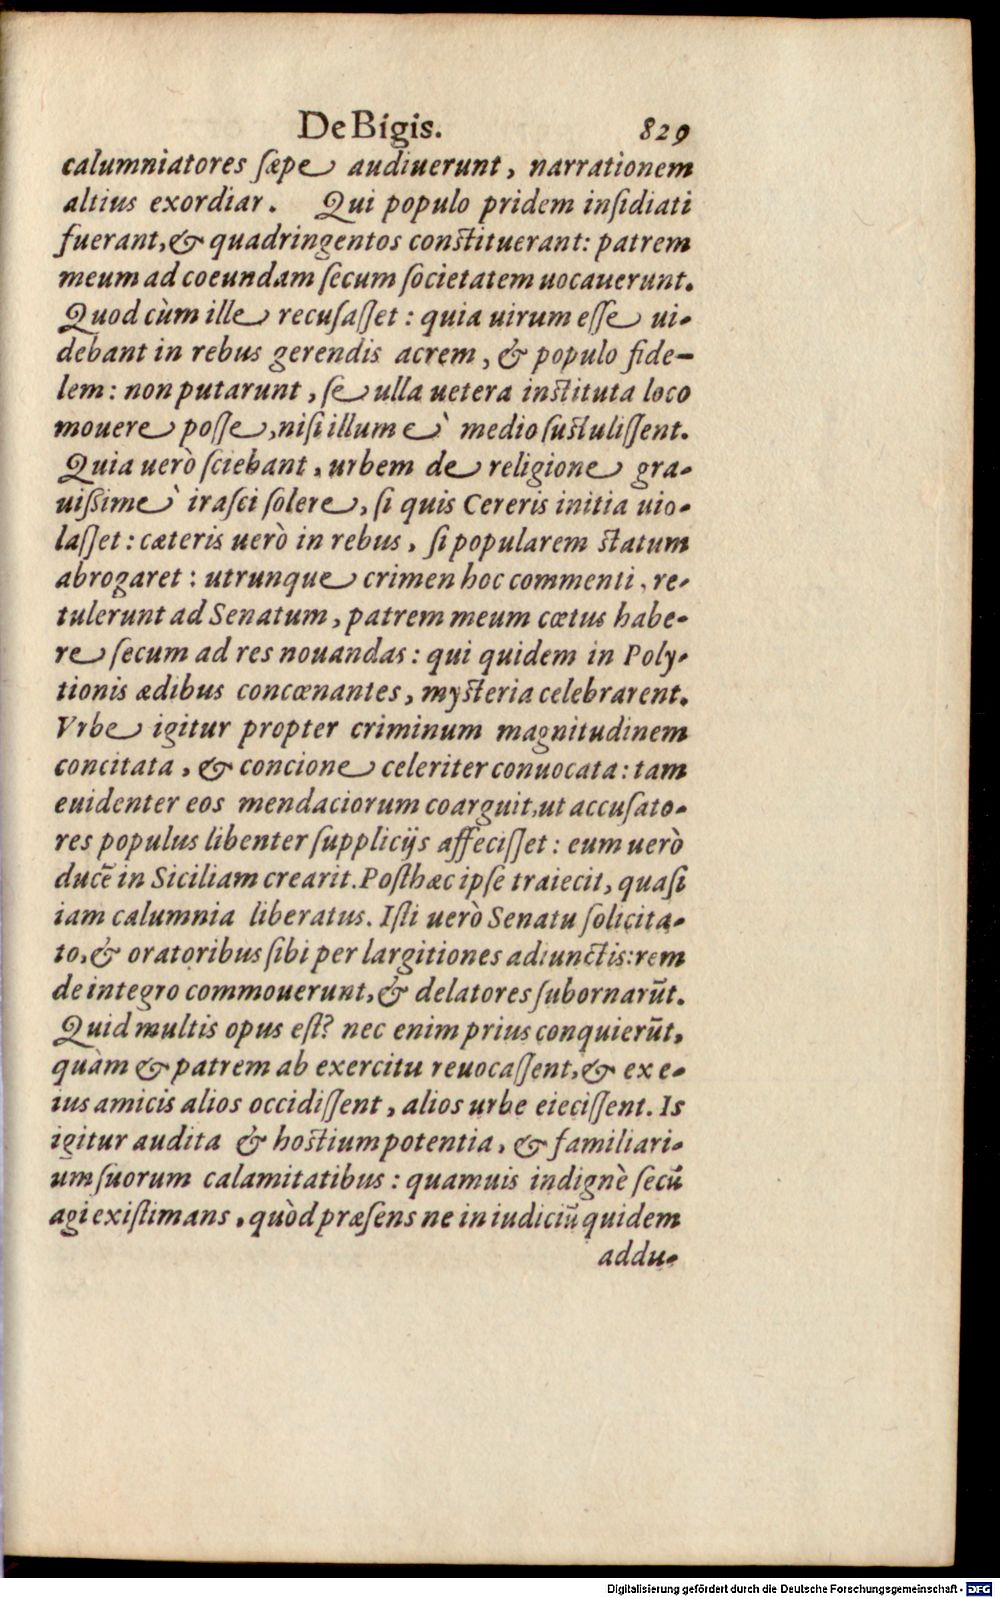 De Bigis. 829
calumniatores sæpe audiuerunt, narrationem
altius exordiar. Qui populo pridem insidiati
fuerant, & quadringentos constituerant: patrem
meum ad coeundam secum societatem uocauerunt.
Quod cùm ille recusasset: quia uirum esse ui-
debant in rebus gerendis acrem, & populo fide-
lem: non putarunt, se ulla uetera instituta loco
mouere posse, nisi illum è medio sustulissent.
Quia uerò sciebant, urbem de religione gra-
uissimè irasci solere, si quis Cereris initia uio-
lasset: cæteris uerò in rebus, si popularem statum
abrogaret: utrunque crimen hoc commenti, re-
tulerunt ad Senatum, patrem meum cœtus habe-
re secum ad res nouandas: qui quidem in Poly-
tionis ædibus concœnantes, mysteria celebrarent.
Vrbe igitur propter criminum magnitudinem
concitata, & concione celeriter conuocata: tam
euidenter eos mendaciorum coarguit, ut accusato-
res populus libenter supplicijs affecisset: eum uerò
ducē in Siciliam crearit. Posthæc ipse traiecit, quasi
iam calumnia liberatus. Isti uerò Senatu solicita-
to, & oratoribus sibi per largitiones adiunctis: rem
de integro commouerunt, & delatores subornarūt.
Quid multis opus est? nec enim prius conquierūt,
quàm & patrem ab exercitu reuocassent, & ex e-
ius amicis alios occidissent, alios urbe eiecissent. Is
igitur audita & hostium potentia, & familiari-
um suorum calamitatibus: quamuis indignè secū
agi existimans, quòd præsens ne in iudiciū quidem
addu-
Digitalisierung gefördert durch die Deutsche Forschungsgemeinschaft - DFG